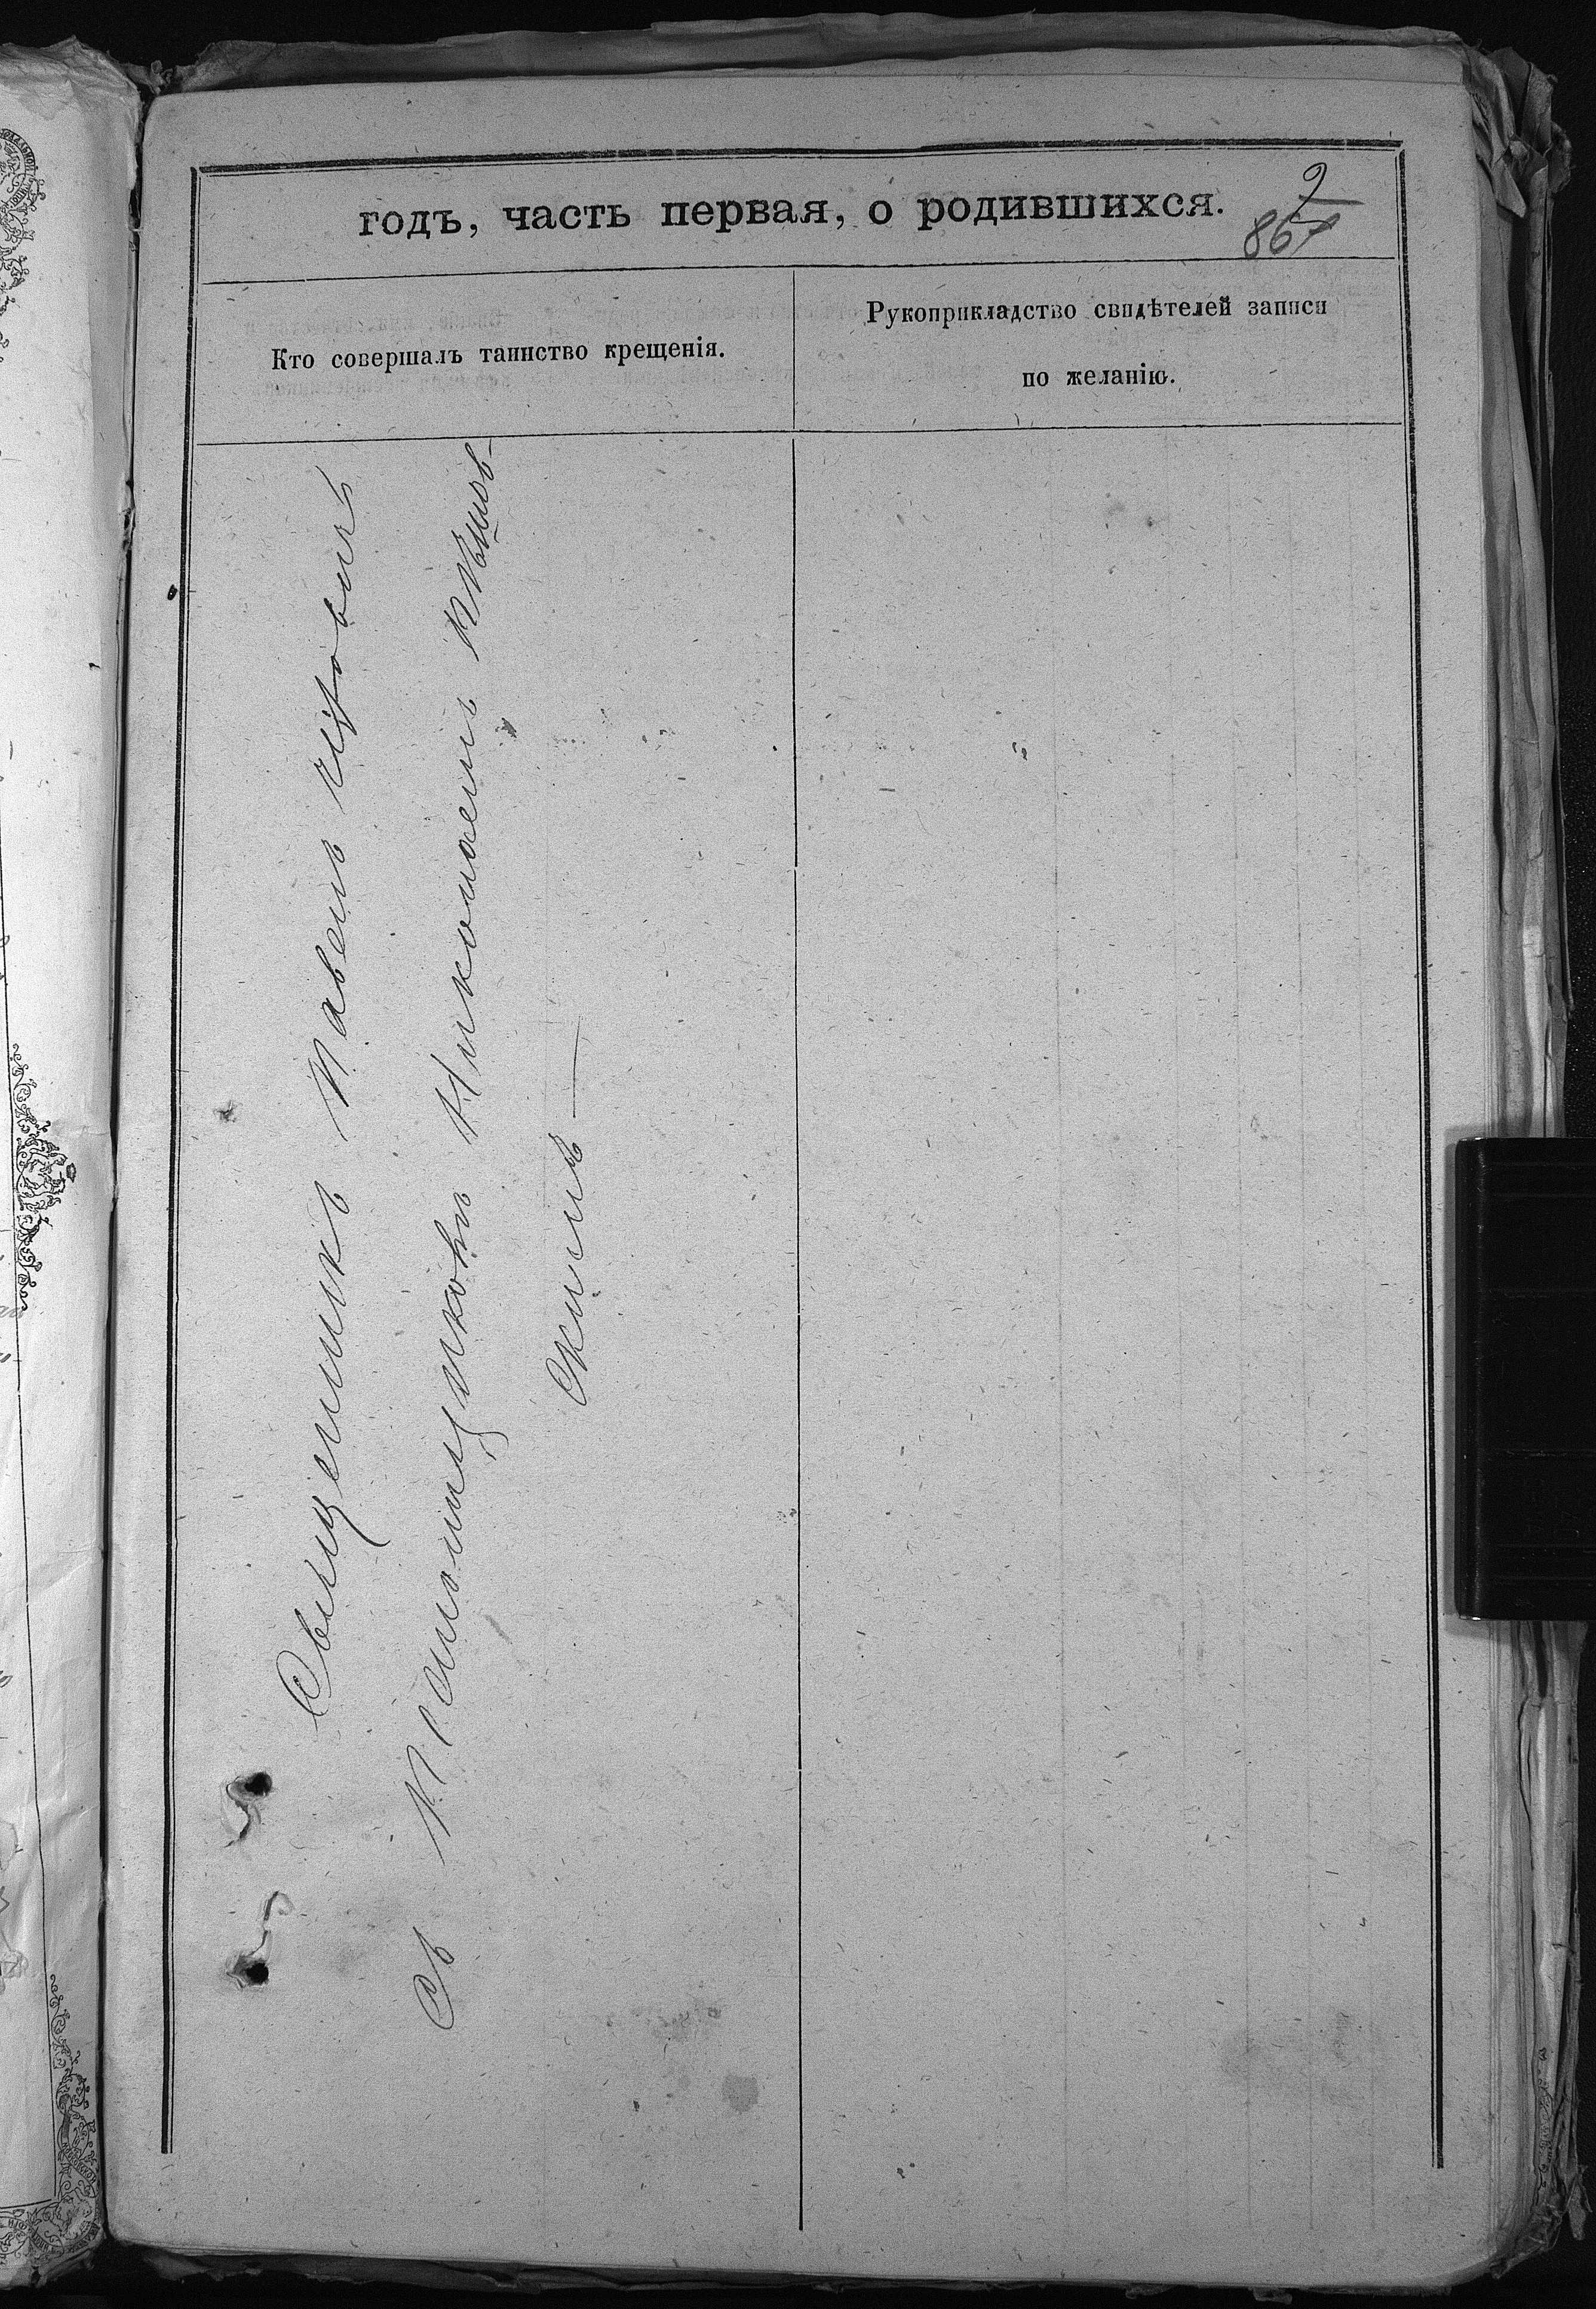 годъ, часть первая, о родившихся.
9
867
Кто совершалъ таинство крещенія.
Рукоприкладство свидѣтелей записи
по желанію.
Священникъ Павелъ
съ Псаломщикомъ Николаемъ